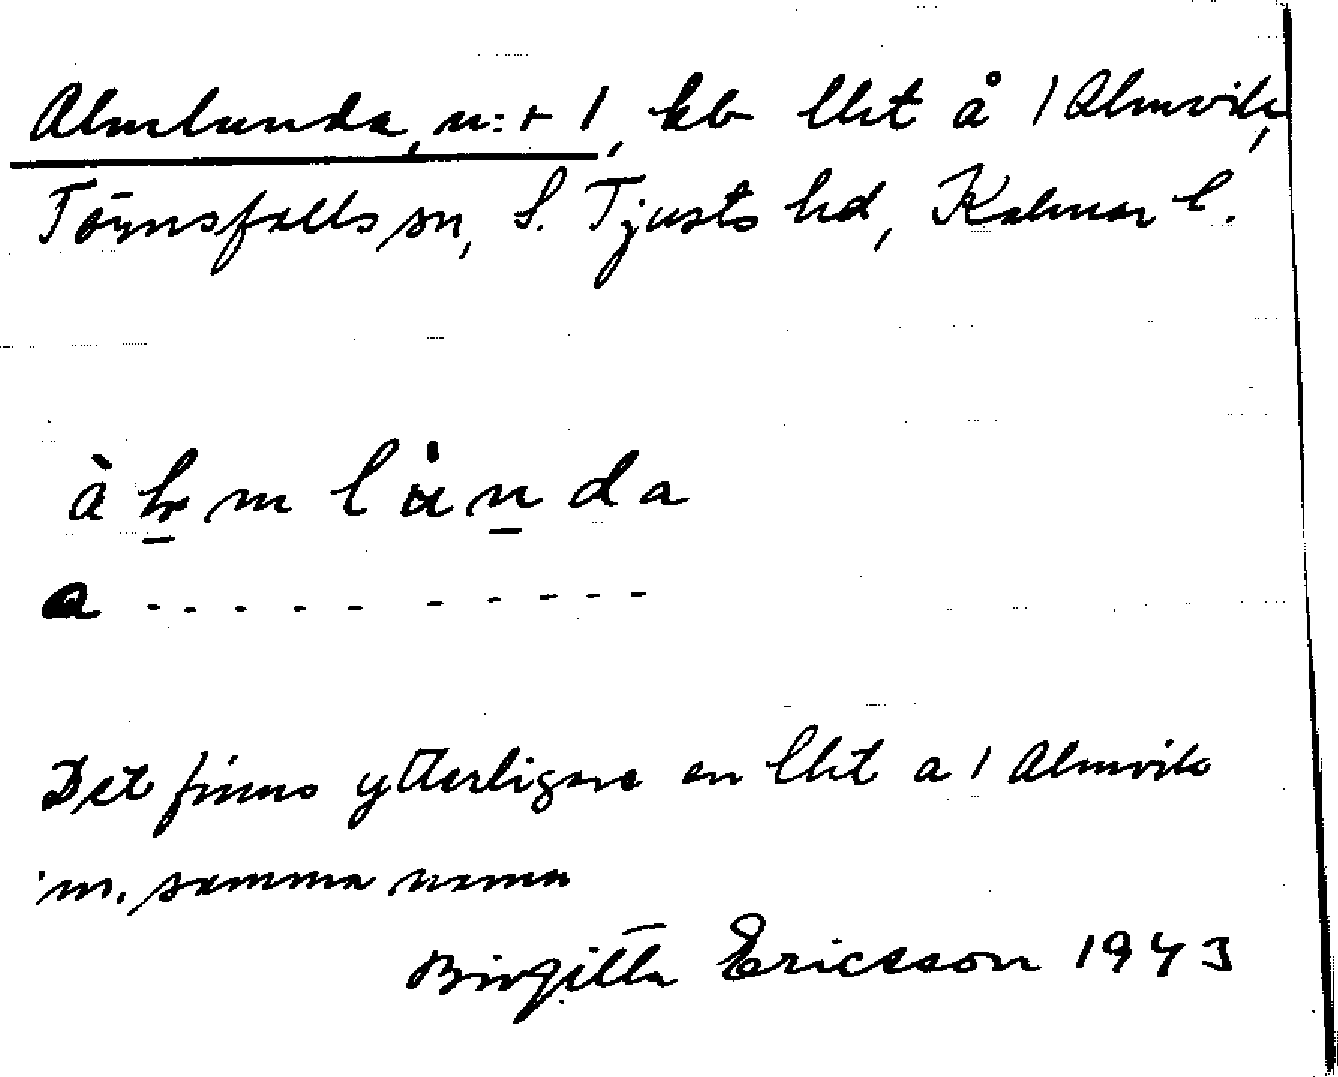 Almlunda, n:r 1, kb lht å 1 Almvik,
Törnsfalls sn, S. Tjusts hd, Kalmar l.
àḻm lu̇ṉda
a - - - - - - - - - -
Det finns ytterligare en lht a 1 Almvik
m. samma namn
Birgitta Ericsson 1943